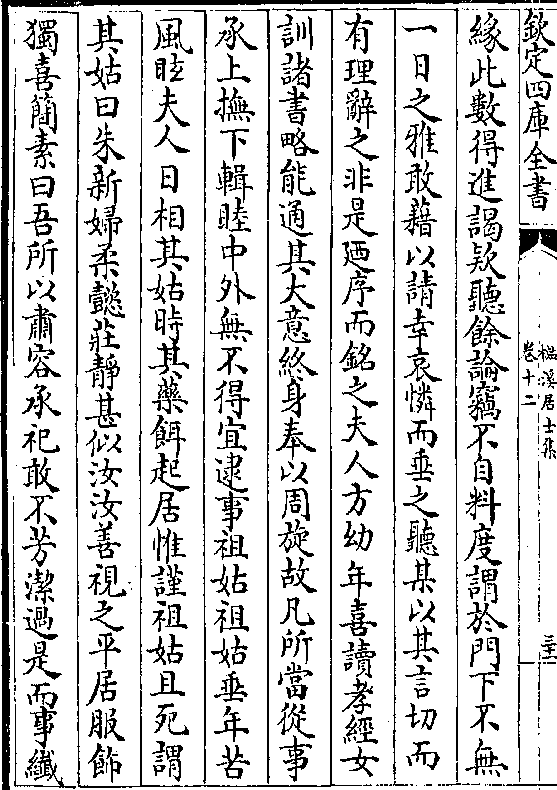 欽定四庫全書
樞溪居士集
卷十二
三十二
緣此數得進謁欵聽餘論竊不自料度謂於門下不無
一日之雅敢藉以請幸哀憐而垂之聽某以其言切而
有理辭之非是廼序而銘之夫人方幼年喜讀孝經女
訓諸書略能通其大意終身奉以周旋故凡所當從事
承上撫下輯睦中外無不得宜逮事祖姑祖姑垂年苦
風眩夫人日相其姑時其藥餌起居惟謹祖姑且死謂
其姑曰朱新婦柔懿莊靜甚似汝汝善視之平居服飾
獨喜簡素曰吾所以肅容承祀敢不芳潔過是而事纖